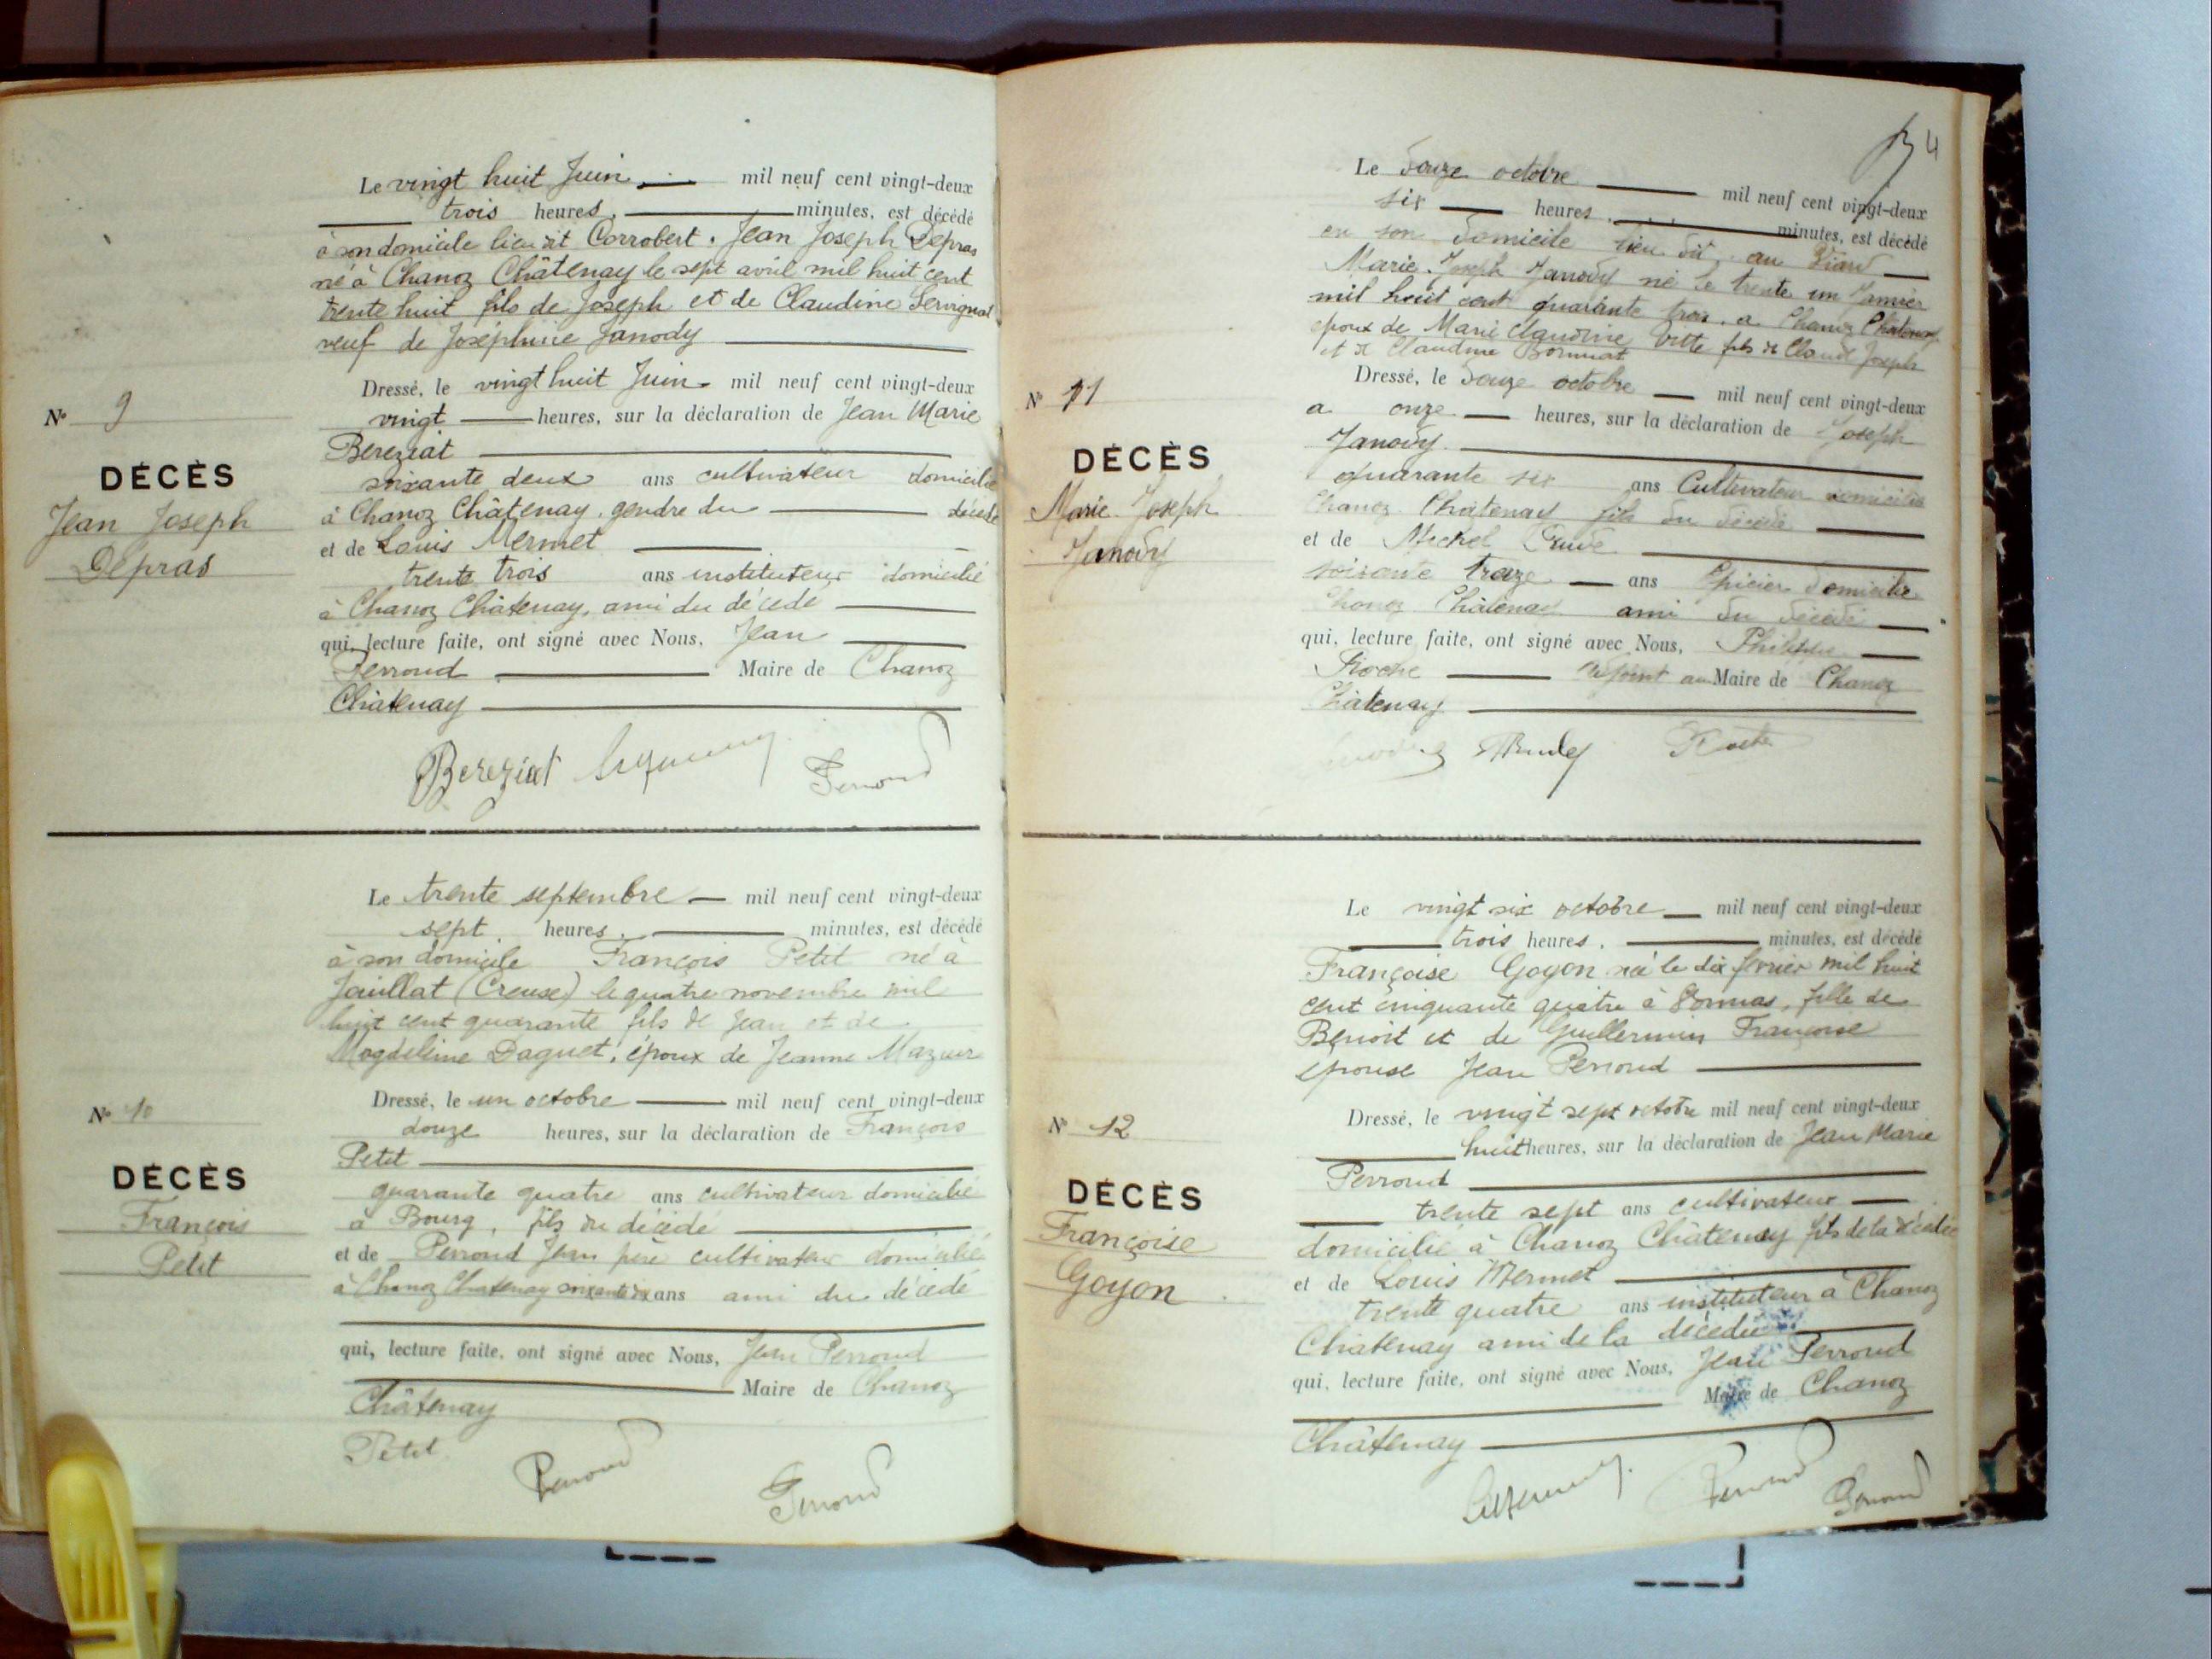 Le vingt huit Juin mil neuf cent vingt-deux
trois heures, minutes, est décédé
à son domicile lieu dit Corrobert. Jean Joseph Dépras
né à Chanoz Châtenay le sept avril mil huit cent
trente huit fils de Joseph et de Claudine Servignat
veuf de Joséphine Janody
Dressé, le vingt huit Juin mil neuf cent vingt-deux
vingt heures, sur la déclaration de Jean Marie
Bereziat
soixante deux ans cultivateur domicilié
à Chanoz Châtenay, gendre du décédé
et de Louis Mermet
trente trois ans instituteur domicilié
à Chanoz Châtenay, ami du décédé
qui, lecture faite, ont signé avec Nous, Jean
Perroud Maire de Chanoz
Châtenay
Nº 9
DÉCÈS
Jean Joseph
Dépras
Bereziat Perroud
Le trente septembre mil neuf cent vingt-deux
sept heures, minutes, est décédé
à son domicile François Petit né à
(Creuse) le quatre novembre mil
huit cent quarante fils de Jean et de
Magdeleine Daquet, époux de Jeanne Mazuer
Dressé, le un octobre mil neuf cent vingt-deux
douze heures, sur la déclaration de François
Petit
quarante quatre ans cultivateur domicilié
à Bourg, fils du décédé
et de Perroud Jean père cultivateur domicilié
à Chanoz Chatenay ans ami du décédé
qui, lecture faite, ont signé avec Nous, Jean Perroud
Maire de Chanoz
Châtenay
Nº 10
DÉCÈS
François
Petit
Petit Perroud Perroud
4
Le Douze octobre mil neuf cent vingt-deux
six heures, minutes, est décédé
en son domicile lieu dit au
Marie Joseph Janody né le trente un Janvier
mil huit cent quarante trois, a Chanoz Châtenay
époux de Marie Claudine Vitte fils de Claude Joseph
et de Claudine
Dressé, le Douze octobre mil neuf cent vingt-deux
a onze heures, sur la déclaration de Joseph
Janody
quarante six ans Cultivateur domicilié
Chanoz Châtenay fils du décédé
et de Michel
soixante treize ans Epicier domicilié
Chanoz Châtenay ami du décédé
qui, lecture faite, ont signé avec Nous, Philippe
Roche adjoint au Maire de Chanoz
Châtenay
Nº 11
DÉCÈS
Marie Joseph
Janody
Roche
Le vingt six octobre mil neuf cent vingt-deux
trois heures, minutes, est décédé
Françoise Goyon née le dix février mil huit
cent cinquante quatre à fille de
Benoît et de Françoise
épouse Jean Perroud
Dressé, le vingt sept octobre mil neuf cent vingt-deux
huit heures, sur la déclaration de Jean Marie
Perroud
trente sept ans cultivateur
domicilié à Chanoz Châtenay fils de la décédée
et de Louis Mermet
trente quatre ans instituteur à Chanoz
Châtenay ami de la décédée
qui, lecture faite, ont signé avec Nous, Jean Perroud
Maire de Chanoz
Châtenay
Nº 12
DÉCÈS
Françoise
Goyon
Perroud Perroud